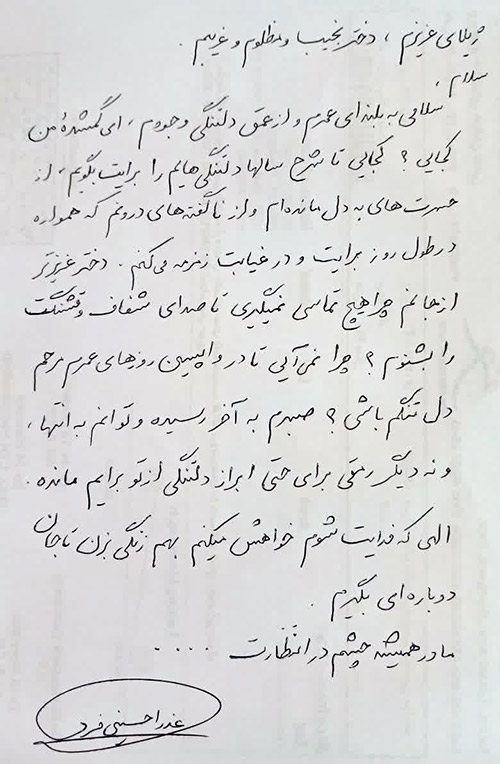 ژیلای عزیزم ، دختر نجیب و مظلوم و غریبم .
سلام ،
سلامی به بلندای عمرم و از عمق دلتنگی وجودم ، ای گمشدهٔ من
کجایی ؟ کجایی تا شرح سالها دلتنگی‌هایم را برایت بگویم ، از
حسرت های به دل مانده‌ام و از ناگفته‌های درونم که همواره
در طول روز برایت و در غیابت زمزمه می‌کنم . دختر عزیزتر
از جانم چرا هیچ تماسی نمیگیری تا صدای شفاف و قشنگت
را بشنوم ؟ چرا نمی‌آیی تا در واپسین روزهای عمرم مرحم
دل تنگم باشی ؟ صبرم به آخر رسیده و توانم به انتها ،
و نه دیگر رمقی برای حتی ابراز دلتنگی از تو برایم مانده .
الهی که فدایت شوم خواهش میکنم بهم زنگی بزن تا جان
دوباره‌ای بگیرم .
مادر همیشه چشم در انتظارت .....
عذرا حسینی فرد